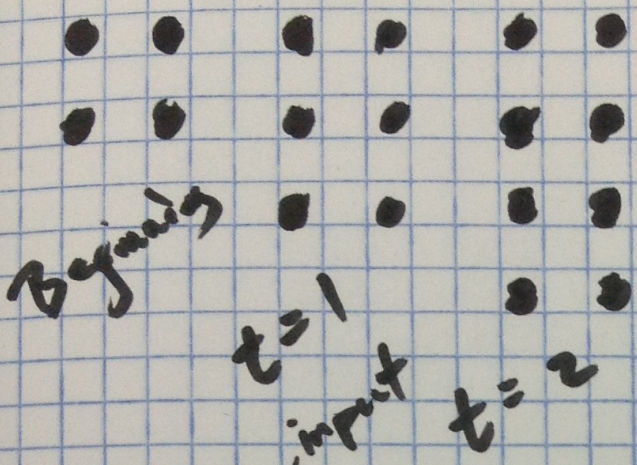 Beginning
t = 1
input
t = 2